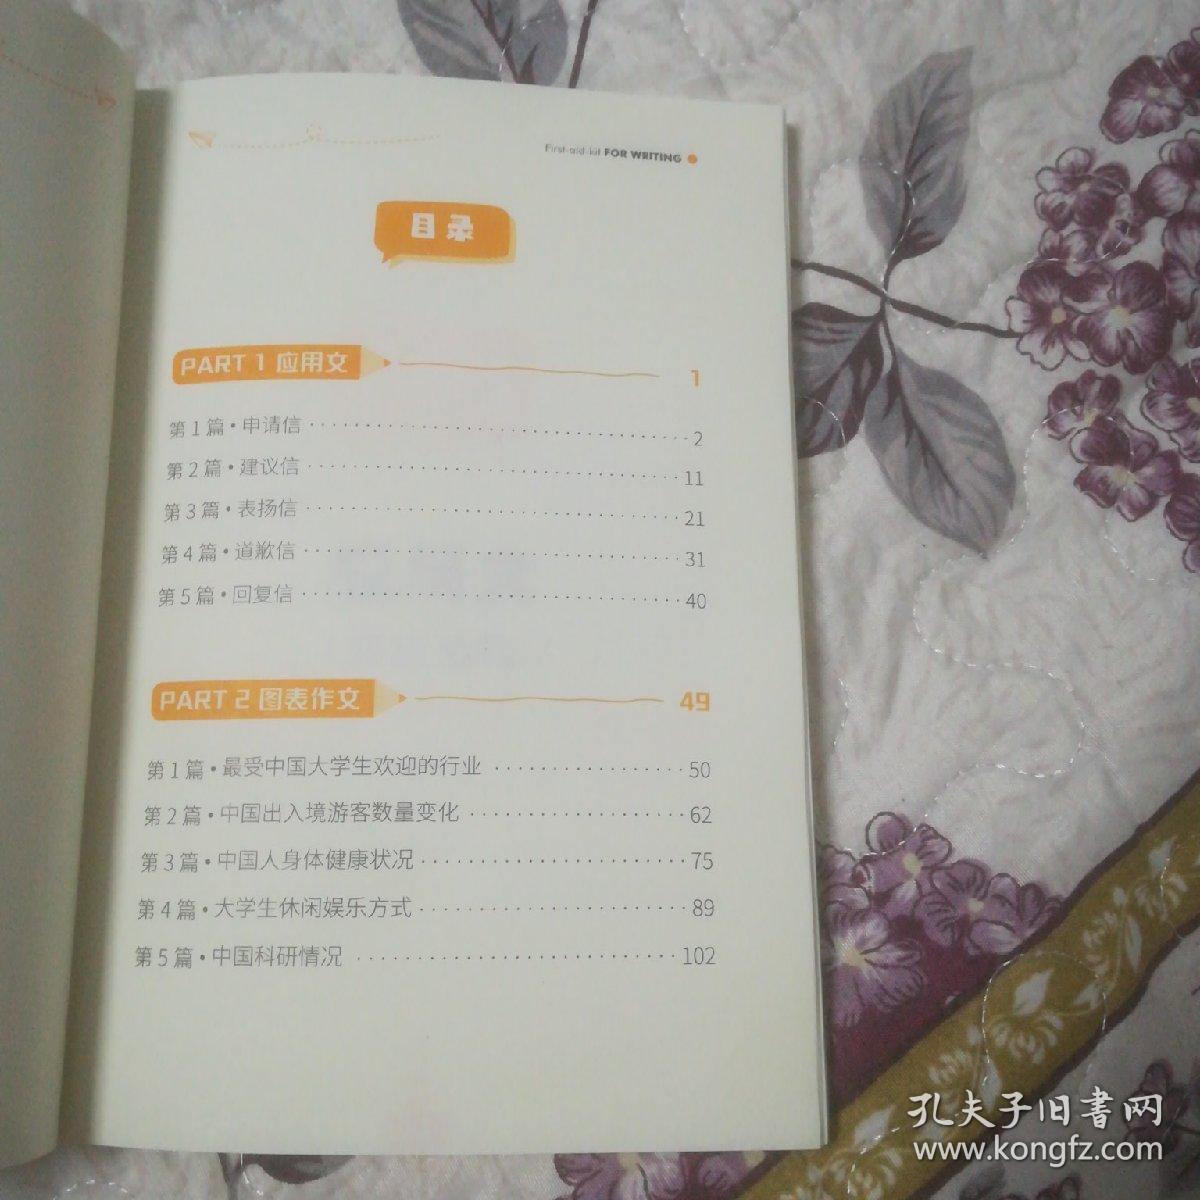 First-aid-kit FOR WRITING
目录
PART 1 应用文 1
第1篇·申请信 2
第2篇·建议信 11
第3篇·表扬信 21
第4篇·道歉信 31
第5篇·回复信 40
PART 2 图表作文 49
第1篇·最受中国大学生欢迎的行业 50
第2篇·中国出入境游客数量变化 62
第3篇·中国人身体健康状况 75
第4篇·大学生休闲娱乐方式 89
第5篇·中国科研情况 102
孔夫子旧書网
www.kongfz.com